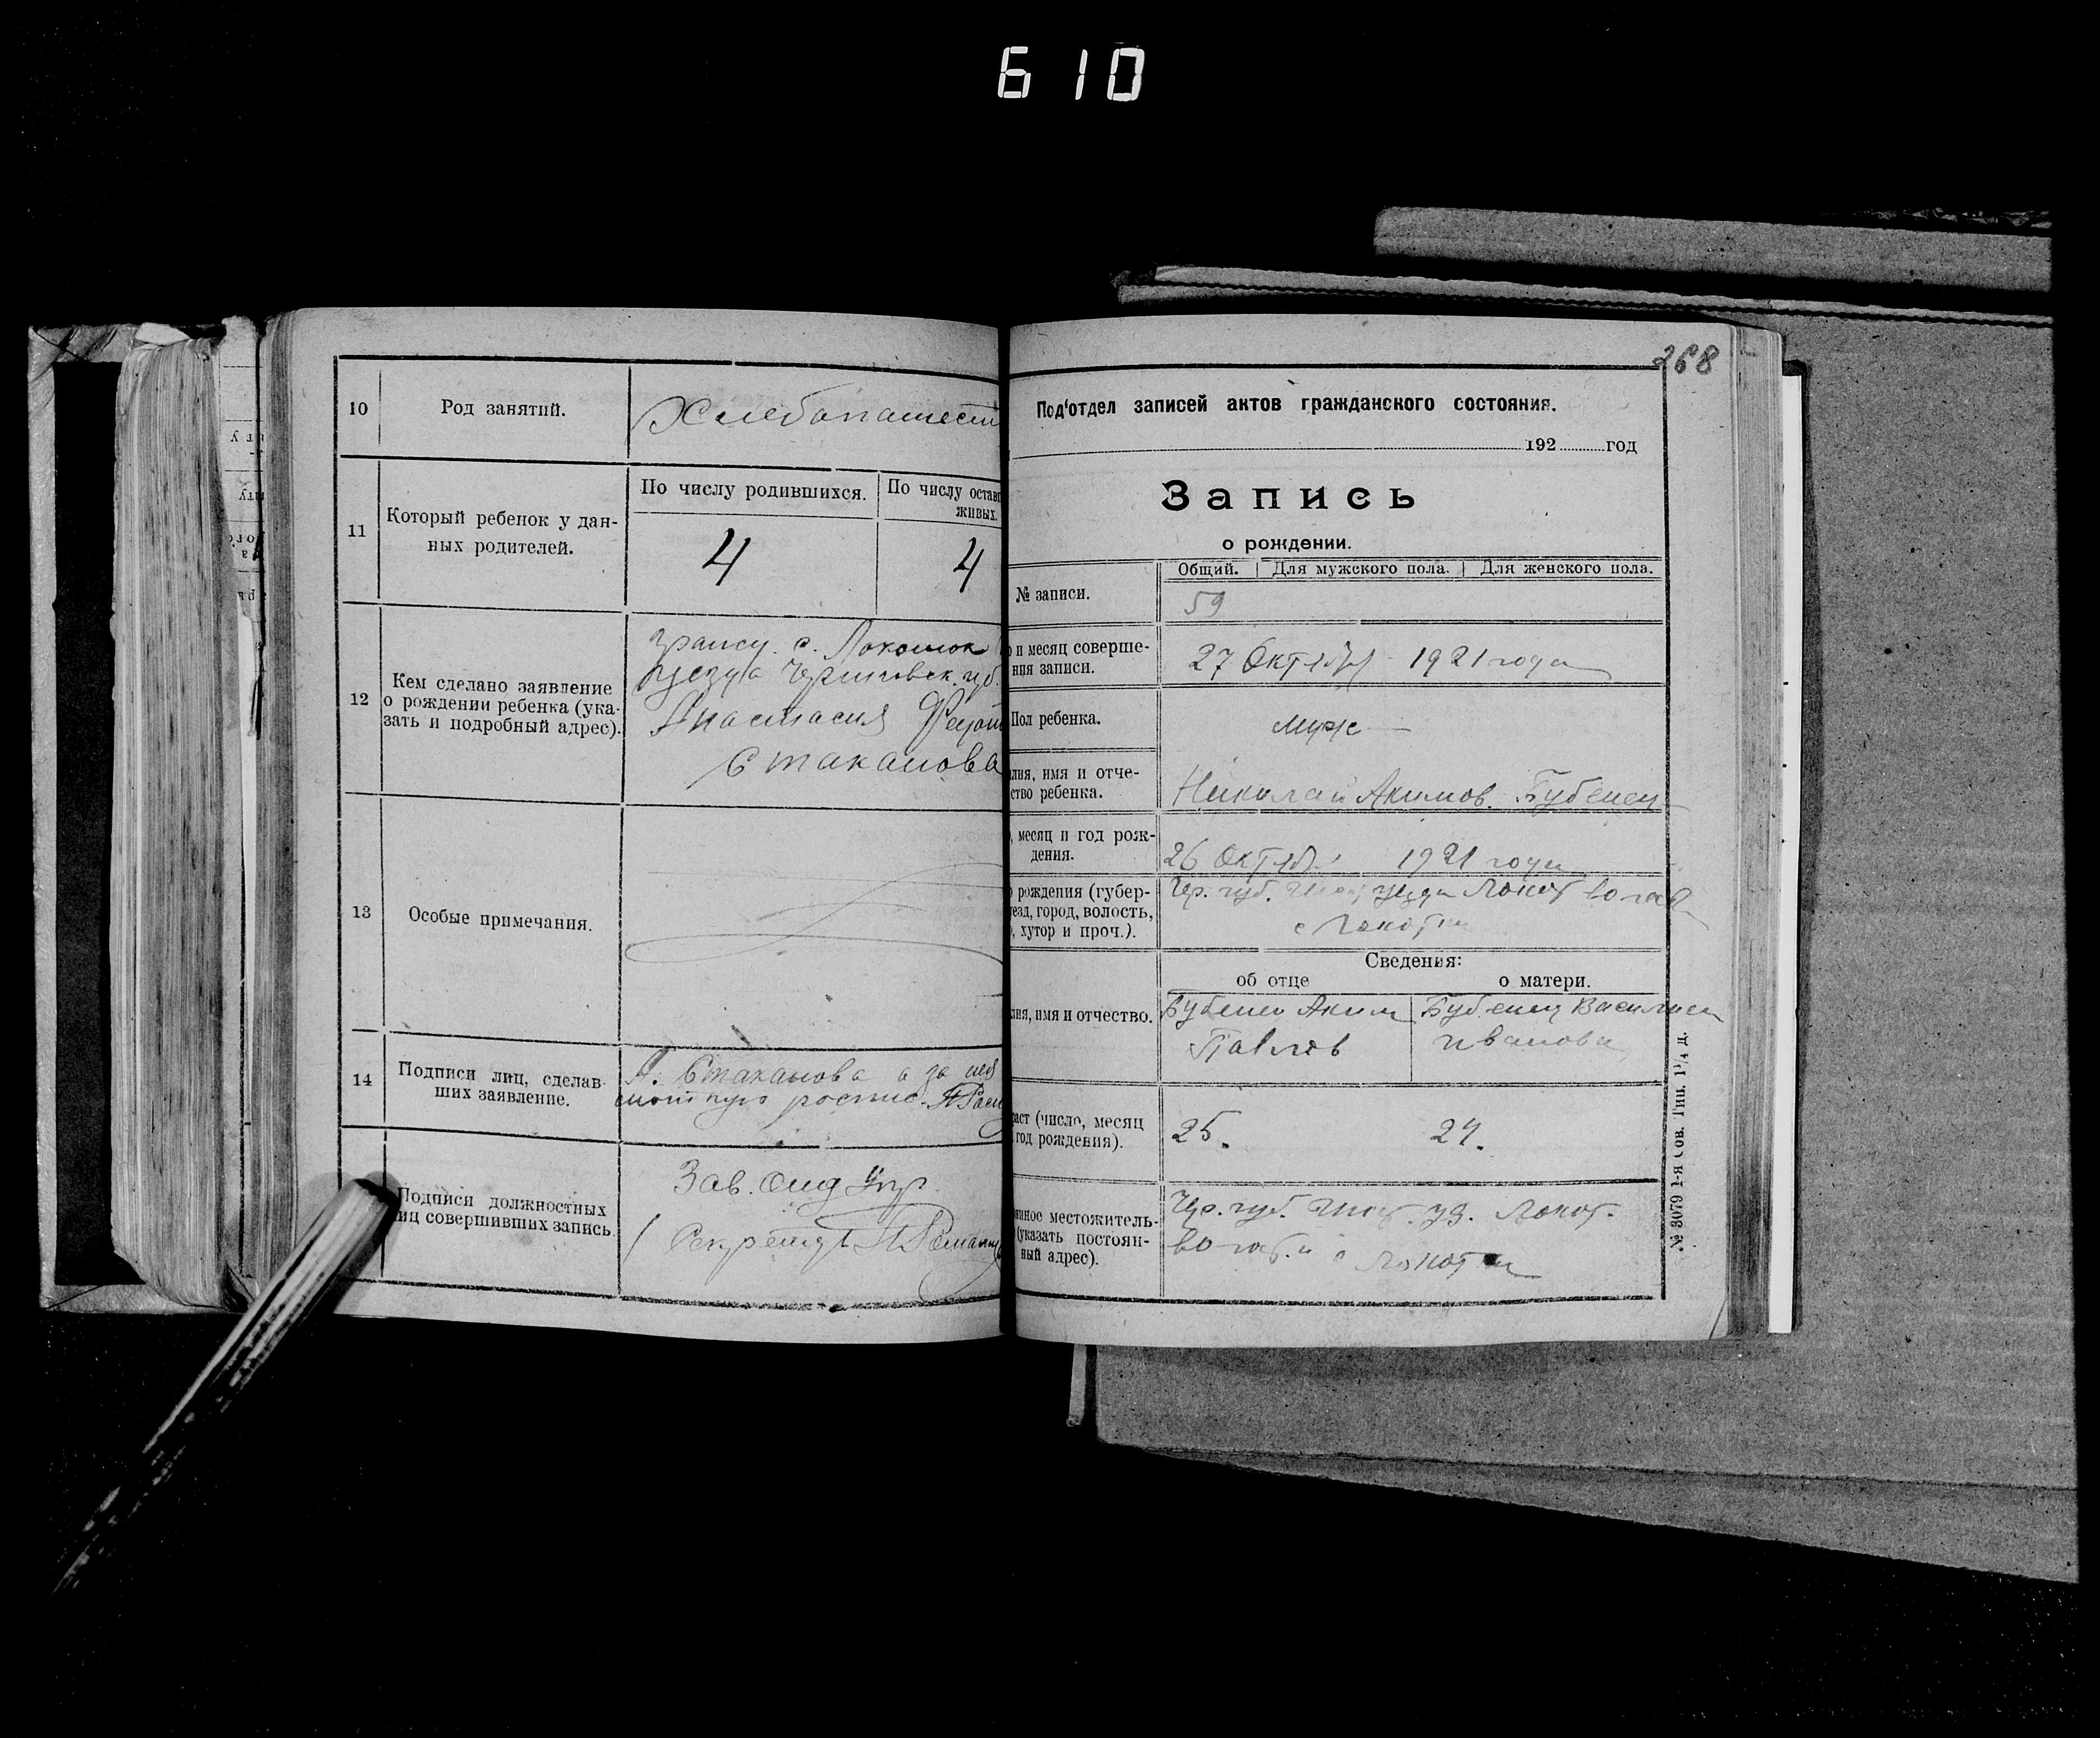 610
10
Род занятий.
Хлебопашест
11
Который ребенок у дан-
ных родителей.
По числу родившихся.
По числу остав
живых.
4
4
12
Кем сделано заявление
о рождении ребенка (ука-
зать и подробный адрес).
с.
уезда Черниговск. губ.
Анастасия
Стаканова
13
Особые примечания.
14
Подписи лиц, сделав-
ших заявление.
А. Стаканова а за нея
Подписи должностных
иц совершивших запись.
Зав.
Секретарь
268
Под'отдел записей актов гражданского состояния.
192 год
Запись
о рождении.
Общий. Для мужского пола. Для женского пола.
№ записи.
59
о и месяц соверше-
ния записи.
27 Октября 1921 года
Пол ребенка.
муж
лия, имя и отче-
ство ребенка.
Николай Акимов. Бубенец
, месяц и год рож-
дения.
26 Октяб. 1921 года
о рождения (губер-
езд, город, волость,
, хутор и проч.).
Чер. губ. уезда Локот
с Локотки
Сведения:
об отце
о матери.
лия, имя и отчество.
Бубенец Аким
Павлов
Бубенец Василиса
Иванова
раст (число, месяц
год рождения).
25.
24.
янное местожитель-
(указать постоян-
ный адрес).
Чер. губ. уз. Локот.
с Локотки
№ 3079 1-я Сов. Тип. 1¼ д.